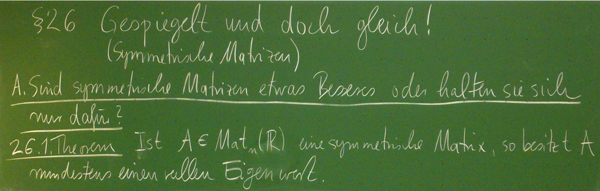 §26 Gespiegelt und doch gleich!
(Symmetrische Matrizen)
A. Sind symmetrische Matrizen etwas Besseres oder halten sie sich
nur dafür?
26.1. Theorem Ist A ∈ Matₙ(ℝ) eine symmetrische Matrix, so besitzt A
mindestens einen reellen Eigenwert.